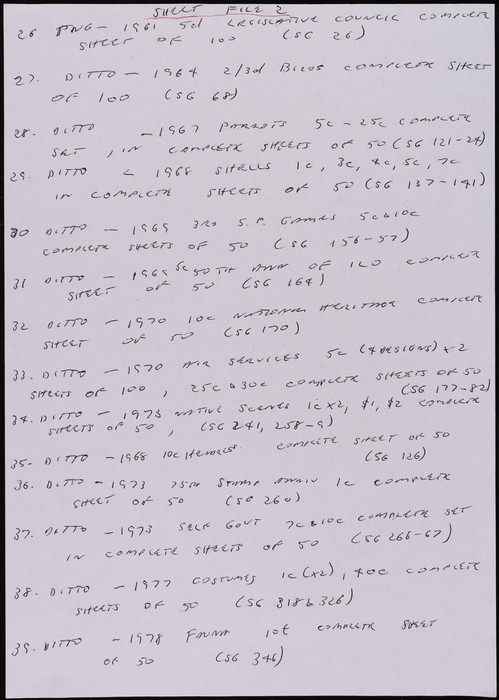 SHEET FILE 2
26 PNG - 1961 5d LEGISLATIVE COUNCIL COMPLETE
SHEET OF 100 (SG 26)
27. DITTO - 1964 2/3d BIRDS COMPLETE SHEET
OF 100 (SG 68)
28. DITTO - 1967 PARROTS 5c - 25c COMPLETE
SET, IN COMPLETE SHEETS OF 50 (SG 121-24)
29. DITTO - 1968 SHELLS 1c, 3c, 4c, 5c, 7c
IN COMPLETE SHEETS OF 50 (SG 137-141)
30 DITTO - 1969 3RD S.P. GAMES 5c & 10c
COMPLETE SHEETS OF 50 (SG 156-57)
31 DITTO - 1969 5c 50TH ANN OF ILO COMPLETE
SHEET OF 50 (SG 164)
32 DITTO - 1970 10c NATIONAL HERITAGE COMPLETE
SHEET OF 50 (SG 170)
33. DITTO - 1970 AIR SERVICES 5c (4 DESIGNS) x 2
SHEETS OF 100, 25c & 30c COMPLETE SHEETS OF 50
(SG 177-82)
34. DITTO - 1973 NATIVE SCENES 1c x2, $1, $2 COMPLETE
SHEETS OF 50, (SG 241, 258-9)
35- DITTO - 1968 10c COMPLETE SHEET OF 50
(SG 126)
36. DITTO - 1973 75TH STAMP ANNIV 1c COMPLETE
SHEET OF 50 (SG 260)
37. DITTO - 1973 SELF GOVT 7c & 10c COMPLETE SET
IN COMPLETE SHEETS OF 50 (SG 266-67)
38. DITTO - 1977 COSTUMES 1c (x2), 40c COMPLETE
SHEETS OF 50 (SG 318 & 326)
39. DITTO - 1978 FAUNA 10t COMPLETE SHEET
OF 50 (SG 346)